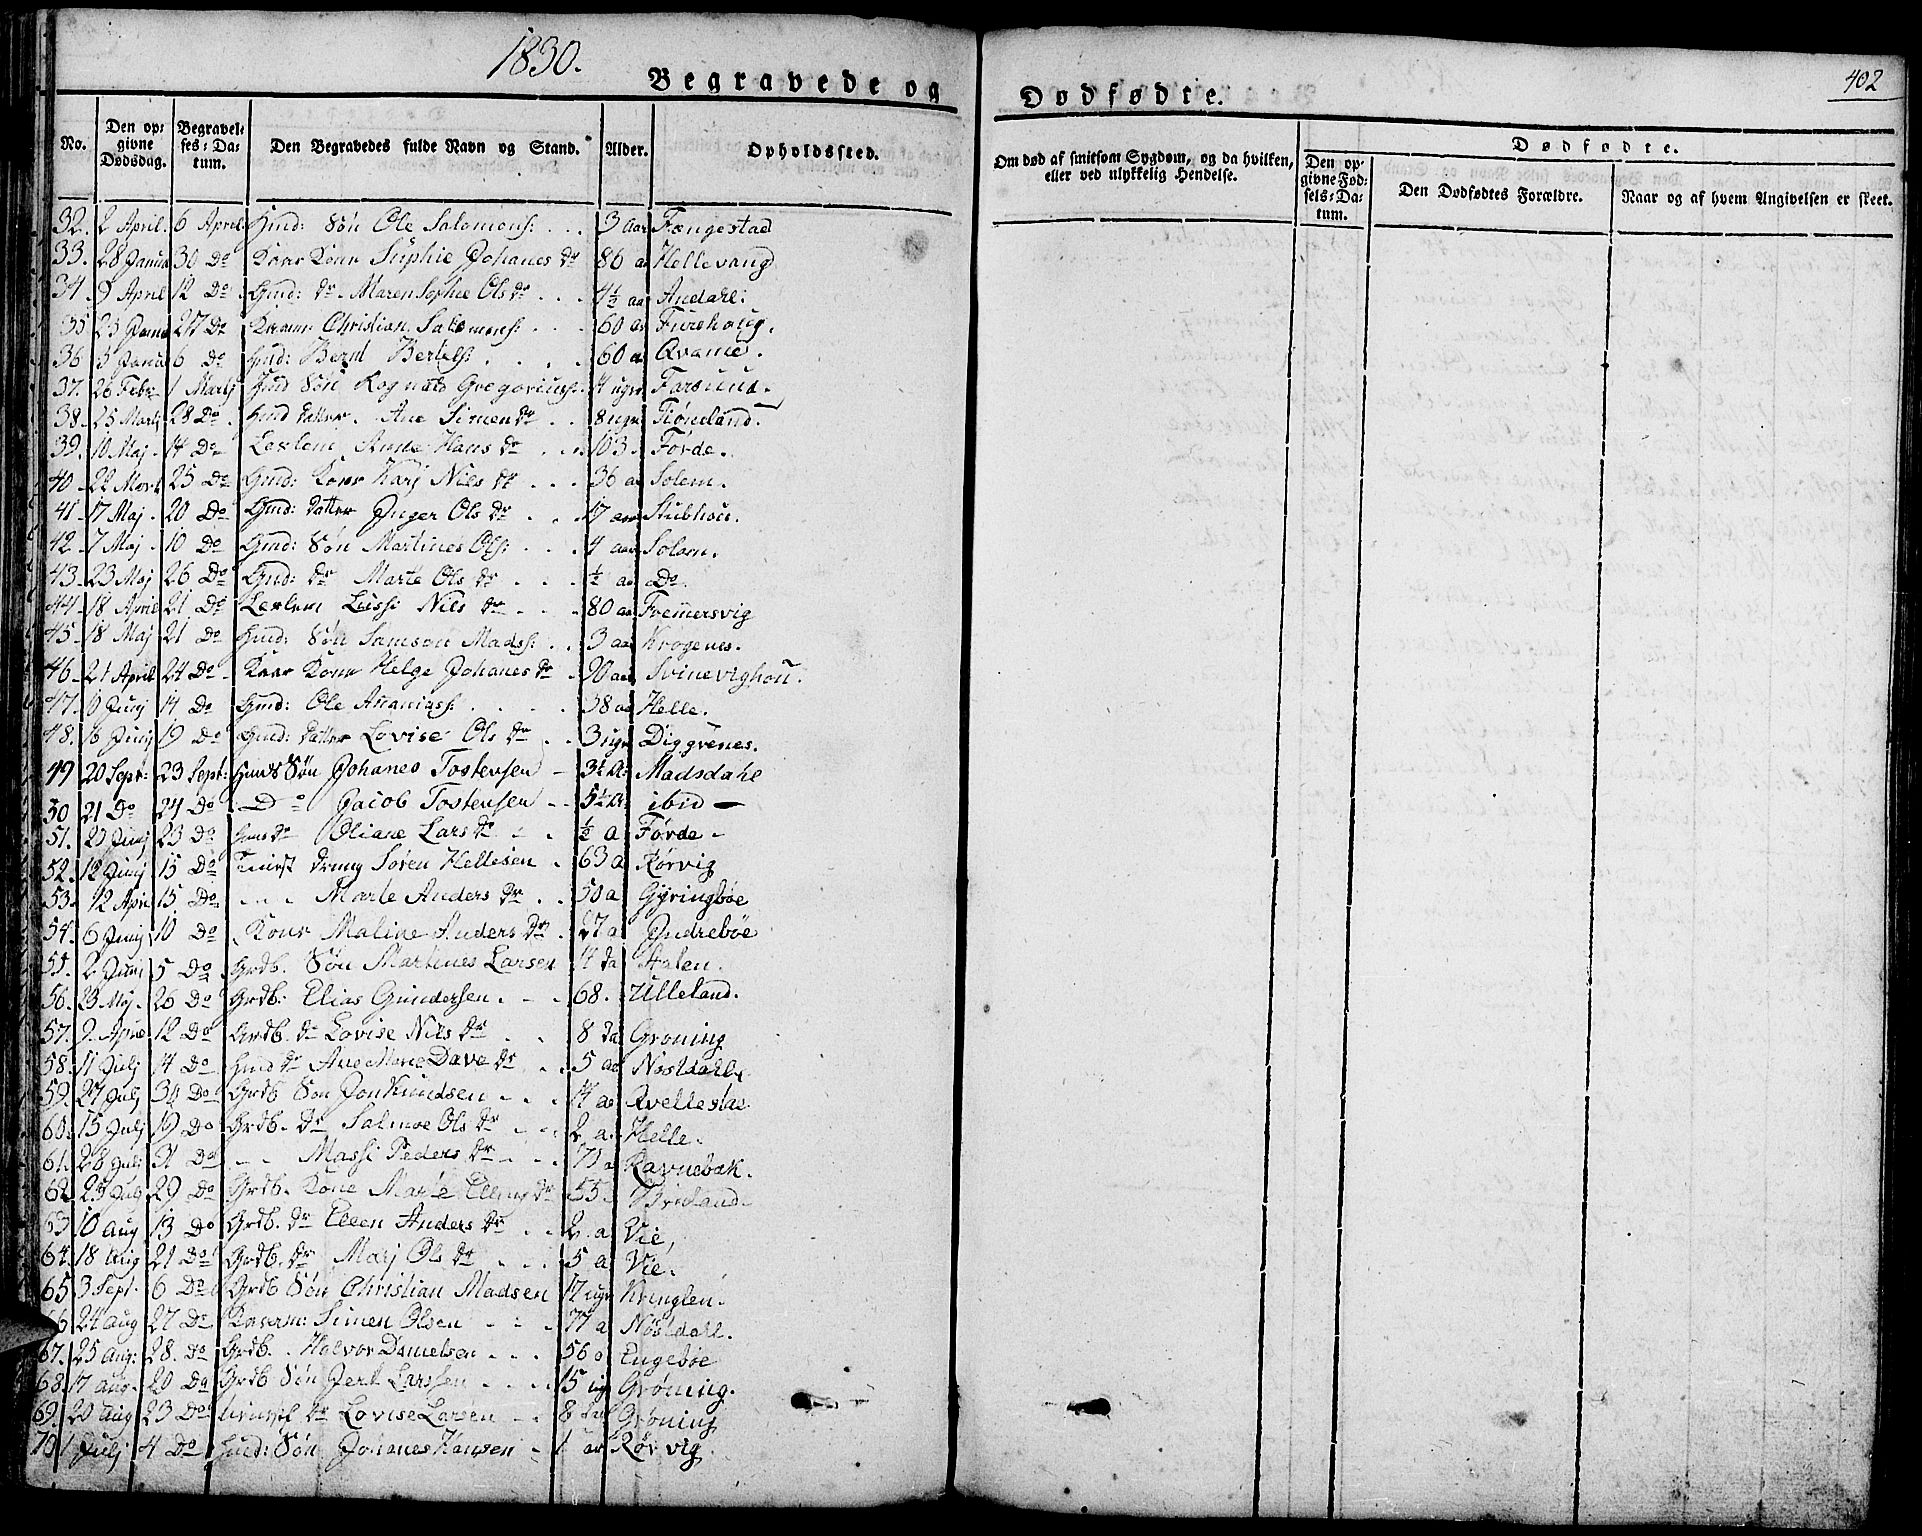 1830.
Begravede og
Dødfødte.
402
No.
Den opgivne Dødsdag.
Begravelses-Datum.
Den Begravedes fulde Navn og Stand.
Alder.
Opholdssted.
Om død af smitsom Sygdom, og da hvilken, eller ved ulykkelig Hendelse.
Dødfødte.
Den opgivne Fødsels-Datum.
Den Dødfødtes Forældre.
Naar og af hvem Angivelsen er skeet.
32. 2 April. 6 April Huusd: Søn Ole Salomons: 3 aar Fængestad
33. 28 Janua 30 Do Kaar Kone Sophie Johanes Dr 86 a Hellevang
34. 9 April 12 Do Hmd: Dr. Maren Sophie Ols Dr 4½ aar Andahl:
35 23 Janua 27 Do Kaarm Christian Salomons: 60 a Furehoug.
36 3 Janua 6 Do Hmd: Bernt Bertels: 60 a Qvame.
37. 26 Febr 1 Martj Hmd Søn Rognald Gregorius: 4 uger Farsund.
38. 25 Martj 28 Do. Hmd Datter. Ane Simen Dr 8 uger Tiøneland.
39. 10 Maj. 14 Do Leglem Anne Hans Dr 103. Førde.
40. 22 Mart 25 Do Hmd: Kone Karj Niels Dr 36 a Solem.
41. 17 Maj. 20 Do Hmd: Datter Inger Ols Dr 17 aar Stubhou.
42. 7 Maj. 10 Do Hmd: Søn Martines Ols: 4 aar Solem.
43. 23 Maj 26 Do Hmd: Dr Marte Ols Dr ½ aar Do.
44. 18 April 21 Do Leglem Lussi Niels Dr 80 aar Fremersvig
45. 18 Maj 21 Do Hmd: Søn Samson Mads: 3 aar Krogenes.
46. 21 April 24 Do Kaar Kone Helge Johanes Dr 90 aar Svinevighou.
47. 10 Junj 14 Do Hmd: Ole Ananias: 38 aar Helle.
48. 16 Junj 19 Do Hmd: Datter Lovise Ols Dr 3 uger Diggvenes.
49 20 Sept: 23 Sept: Hmds Søn Johanes Tostensen 3½ A: Madsdahl
50 21 Do 24 Do Do Jacob Tostensen 5½ A: ibid
51. 20 Junj 23 Do Hms Dr Oliane Lars Dr ½ a Førde
52. 12 Junj 15 Do Tienist Dreng Søren Hellesen 63 a Rørvig
53. 12 Apri 15 Do Marte Anders Dr 50 a Gyringbøe
54. 6 Junj 10 Do Kone Maline Anders Dr 27 a Indrebøe
55. 2 Juni 5 Do Grdb. Søn Martines Larsen 14 Da Stalen.
56. 23 Maj. 26 Do Grdb: Elias Gundersen. 68. Ulleland.
57. 9. April 12 Do Grdb. Dr Lovise Niels Dr 8 Da Grøning
58. 11 Julj 14 Do Hmd Dr Ane Marie Dave Dr 5 aar Nøstdahl.
59. 27 Julj 30 Do Grdb Søn Jon Knudsen 14 a Qvellestad
60. 15 Julj 19 Do Grdb. Dr Salmoe Ols Dr 2 a. Helle.
61. 28 Julj 31 Do Massi Peders Dr 71 a Ravnebak.
62 25 Julj 29 Do Grdb. Kone Marte Ellings Dr 55.
63 10 Aug 13 Do Grdb. Dr Elen Anders Dr 2. a Vie,
64. 18 Aug 21 Do Grdb. Dr Marj Ols Dr 5 a Vie.
65 3 Sept. 6 Do Grdb Søn Christian Madsen 12 uger Kringlen.
66 24 Aug 27 Do Kaarm: Simen Olsen 77 a Nøstdall.
67. 25 Aug: 28. Do Grdb. Halvor Danielsen 56 a Engebøe
68. 17 Aug. 20 Do Grdb Søn Jert Larssen 15 ug Grøning.
69. 20 Aug 23 Do Dr Lovise Larsen 8 Grøning
70 1 Julj 4 Do Hmd: Søn Johanes Hansen 1 aar Rørvig.